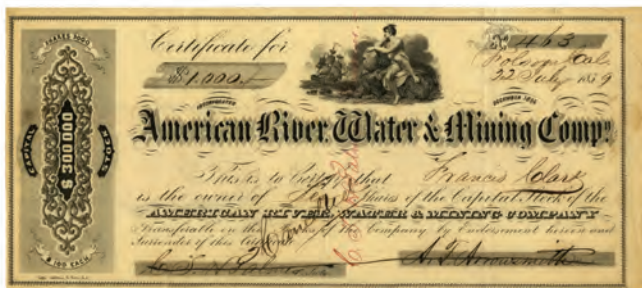 SHARES 3000
CAPITAL
$300000
STOCK
$100 EACH
Certificate for
$1,000
No 463
Folsom Cal
22 July 1859
INCORPORATED
DECEMBER 1854
American River Water & Mining Compy.
This is to Certify that Francis Clark
is the owner of Shares of the Capital Stock of the
AMERICAN RIVER WATER & MINING COMPANY
Transferable on the Books of the Company by Endorsement hereon and
Surrender of this Certificate